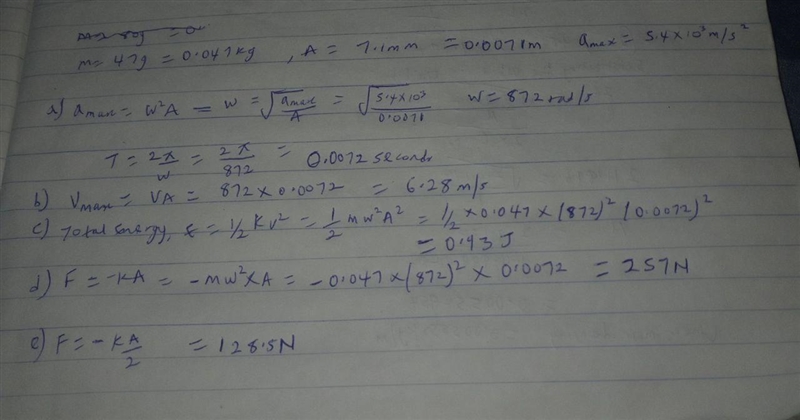 m = 47g = 0.047kg , A = 7.1mm = 0.0071m amax = 5.4×10³m/s²
a) amax = w²A = w = √amax/A = √5.4×10³/0.0071 w = 872 rad/s
T = 2π/w = 2π/872 = 0.0072 seconds
b) Vmax = VA = 872 × 0.0072 = 6.28 m/s
c) Total energy, ε = 1/2 KV² = 1/2 mw²A² = 1/2 × 0.047 × (872)² (0.0072)²
= 0.93 J
d) F = -KA = -mw²XA = -0.047 × (872)² × 0.0072 = 257N
e) F = -KA/2 = 128.5N